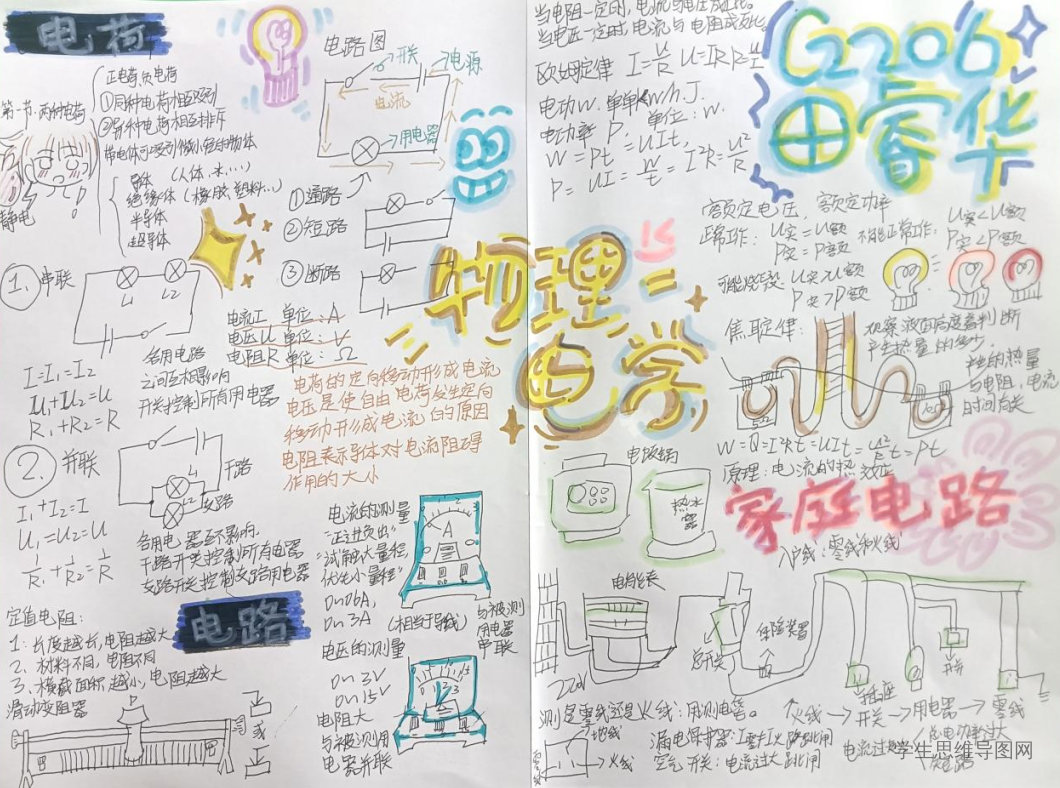 电荷
正电荷 负电荷
第一节：两种电荷
①同种电荷相互吸引
②异种电荷相互排斥
带电体可吸引微小轻的物体
导体 （人体、水…）
绝缘体（橡胶、塑料…）
半导体
超导体
静电
电路图
开关
电源
电流
用电器
①通路
②短路
③断路
1. 串联
L1
L2
各用电路
之间互相影响
开关控制所有用电器
I=I1=I2
U1+U2=U
R1+R2=R
电流I 单位：A
电压U 单位：V
电阻R 单位：Ω
电荷的定向移动形成电流
电压是使自由电荷发生定向
移动形成电流的原因
电阻表示导体对电流阻碍
作用的大小
2. 并联
干路
L1
支路
L2
I1+I2=I
U1=U2=U
1/R1+1/R2=1/R
各用电器互不影响
干路开关控制所有电器
支路开关控制支路用电器
定值电阻：
1：长度越长，电阻越大
2、材料不同，电阻不同
3、横截面积越小，电阻越大
滑动变阻器
或
电路
电流的测量
"正进负出"
"试触大量程，
优先小量程"
0~0.6A，
0~3A （相当于导线）
与被测
用电器
串联
A
电压的测量
0~3V
0~15V
电阻大
与被测用
电器并联
物理=
电学
当电阻一定时，电流与电压成正比。
当电压一定时，电流与电阻成反比。
欧姆定律 I=U/R U=IR R=U/I
电功W.
电功率 P. 单位：W.
W=Pt=UIt,
P=UI=W/t=I²R=U²/R
G2206
田睿华
额定电压，额定功率
正常工作：U实=U额
P实=P额
不能正常工作：U实<U额
P实<P额
可能烧毁：U实>U额
P实>P额
焦耳定律：
观察液面高度差判断
产生热量的多少。
产生的热量
与电阻，电流
时间有关
W=Q=I²Rt=UIt=U²/R t=Pt
原理：电流的热效应
电饭锅
热水器
家庭电路
入户线：零线和火线
电能表
220V
总开关
保险装置
插座
开关
测是零线还是火线：用测电笔。
火线→开关→用电器→零线
地线
零线
火线
漏电保护器：I零≠I火 跳闸
空气开关：电流过大跳闸
电流过大
总电功率过大
短路
学生思维导图网